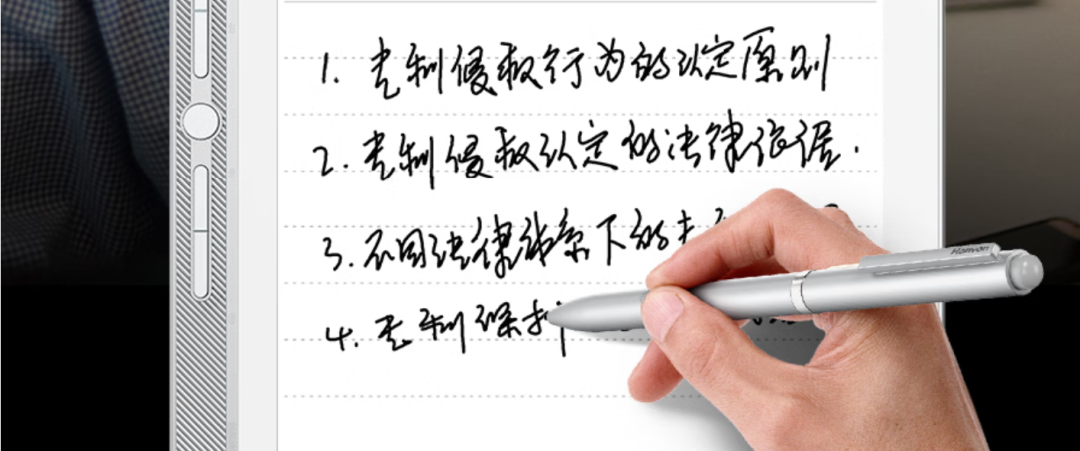 1. 专利侵权行为的认定原则
2. 专利侵权认定的法律依据.
3. 不同法律体系下的专
4. 专利保护
Hanvon